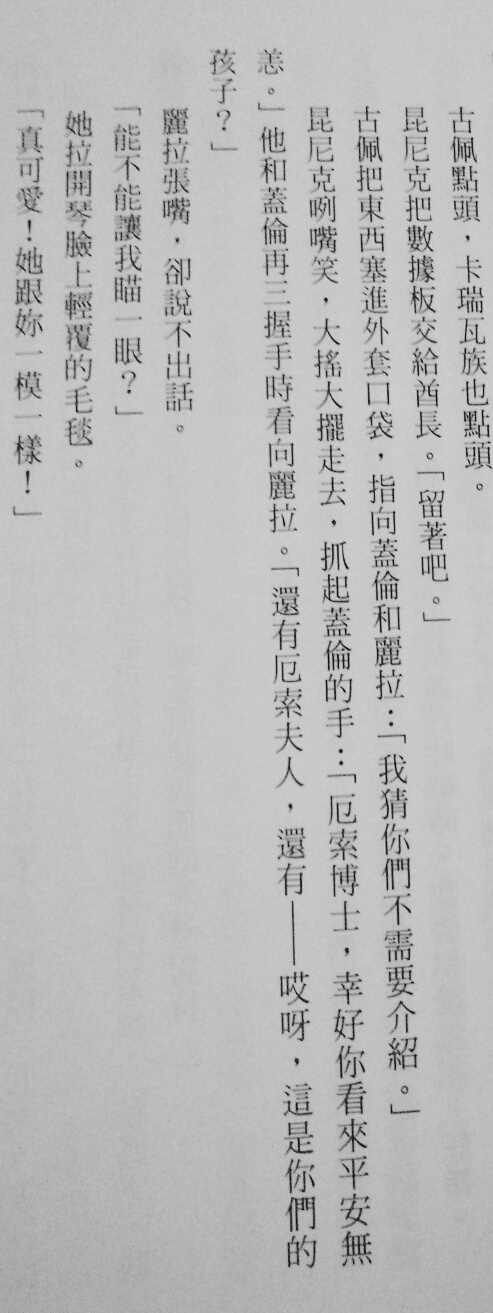 古佩點頭，卡瑞瓦族也點頭。
昆尼克把數據板交給酋長。「留著吧。」
古佩把東西塞進外套口袋，指向蓋倫和麗拉：「我猜你們不需要介紹。」
昆尼克咧嘴笑，大搖大擺走去，抓起蓋倫的手：「厄索博士，幸好你看來平安無
恙。」他和蓋倫再三握手時看向麗拉。「還有厄索夫人，還有——哎呀，這是你們的
孩子？」
麗拉張嘴，卻說不出話。
「能不能讓我瞄一眼？」
她拉開琴臉上輕覆的毛毯。
「真可愛！她跟妳一模一樣！」